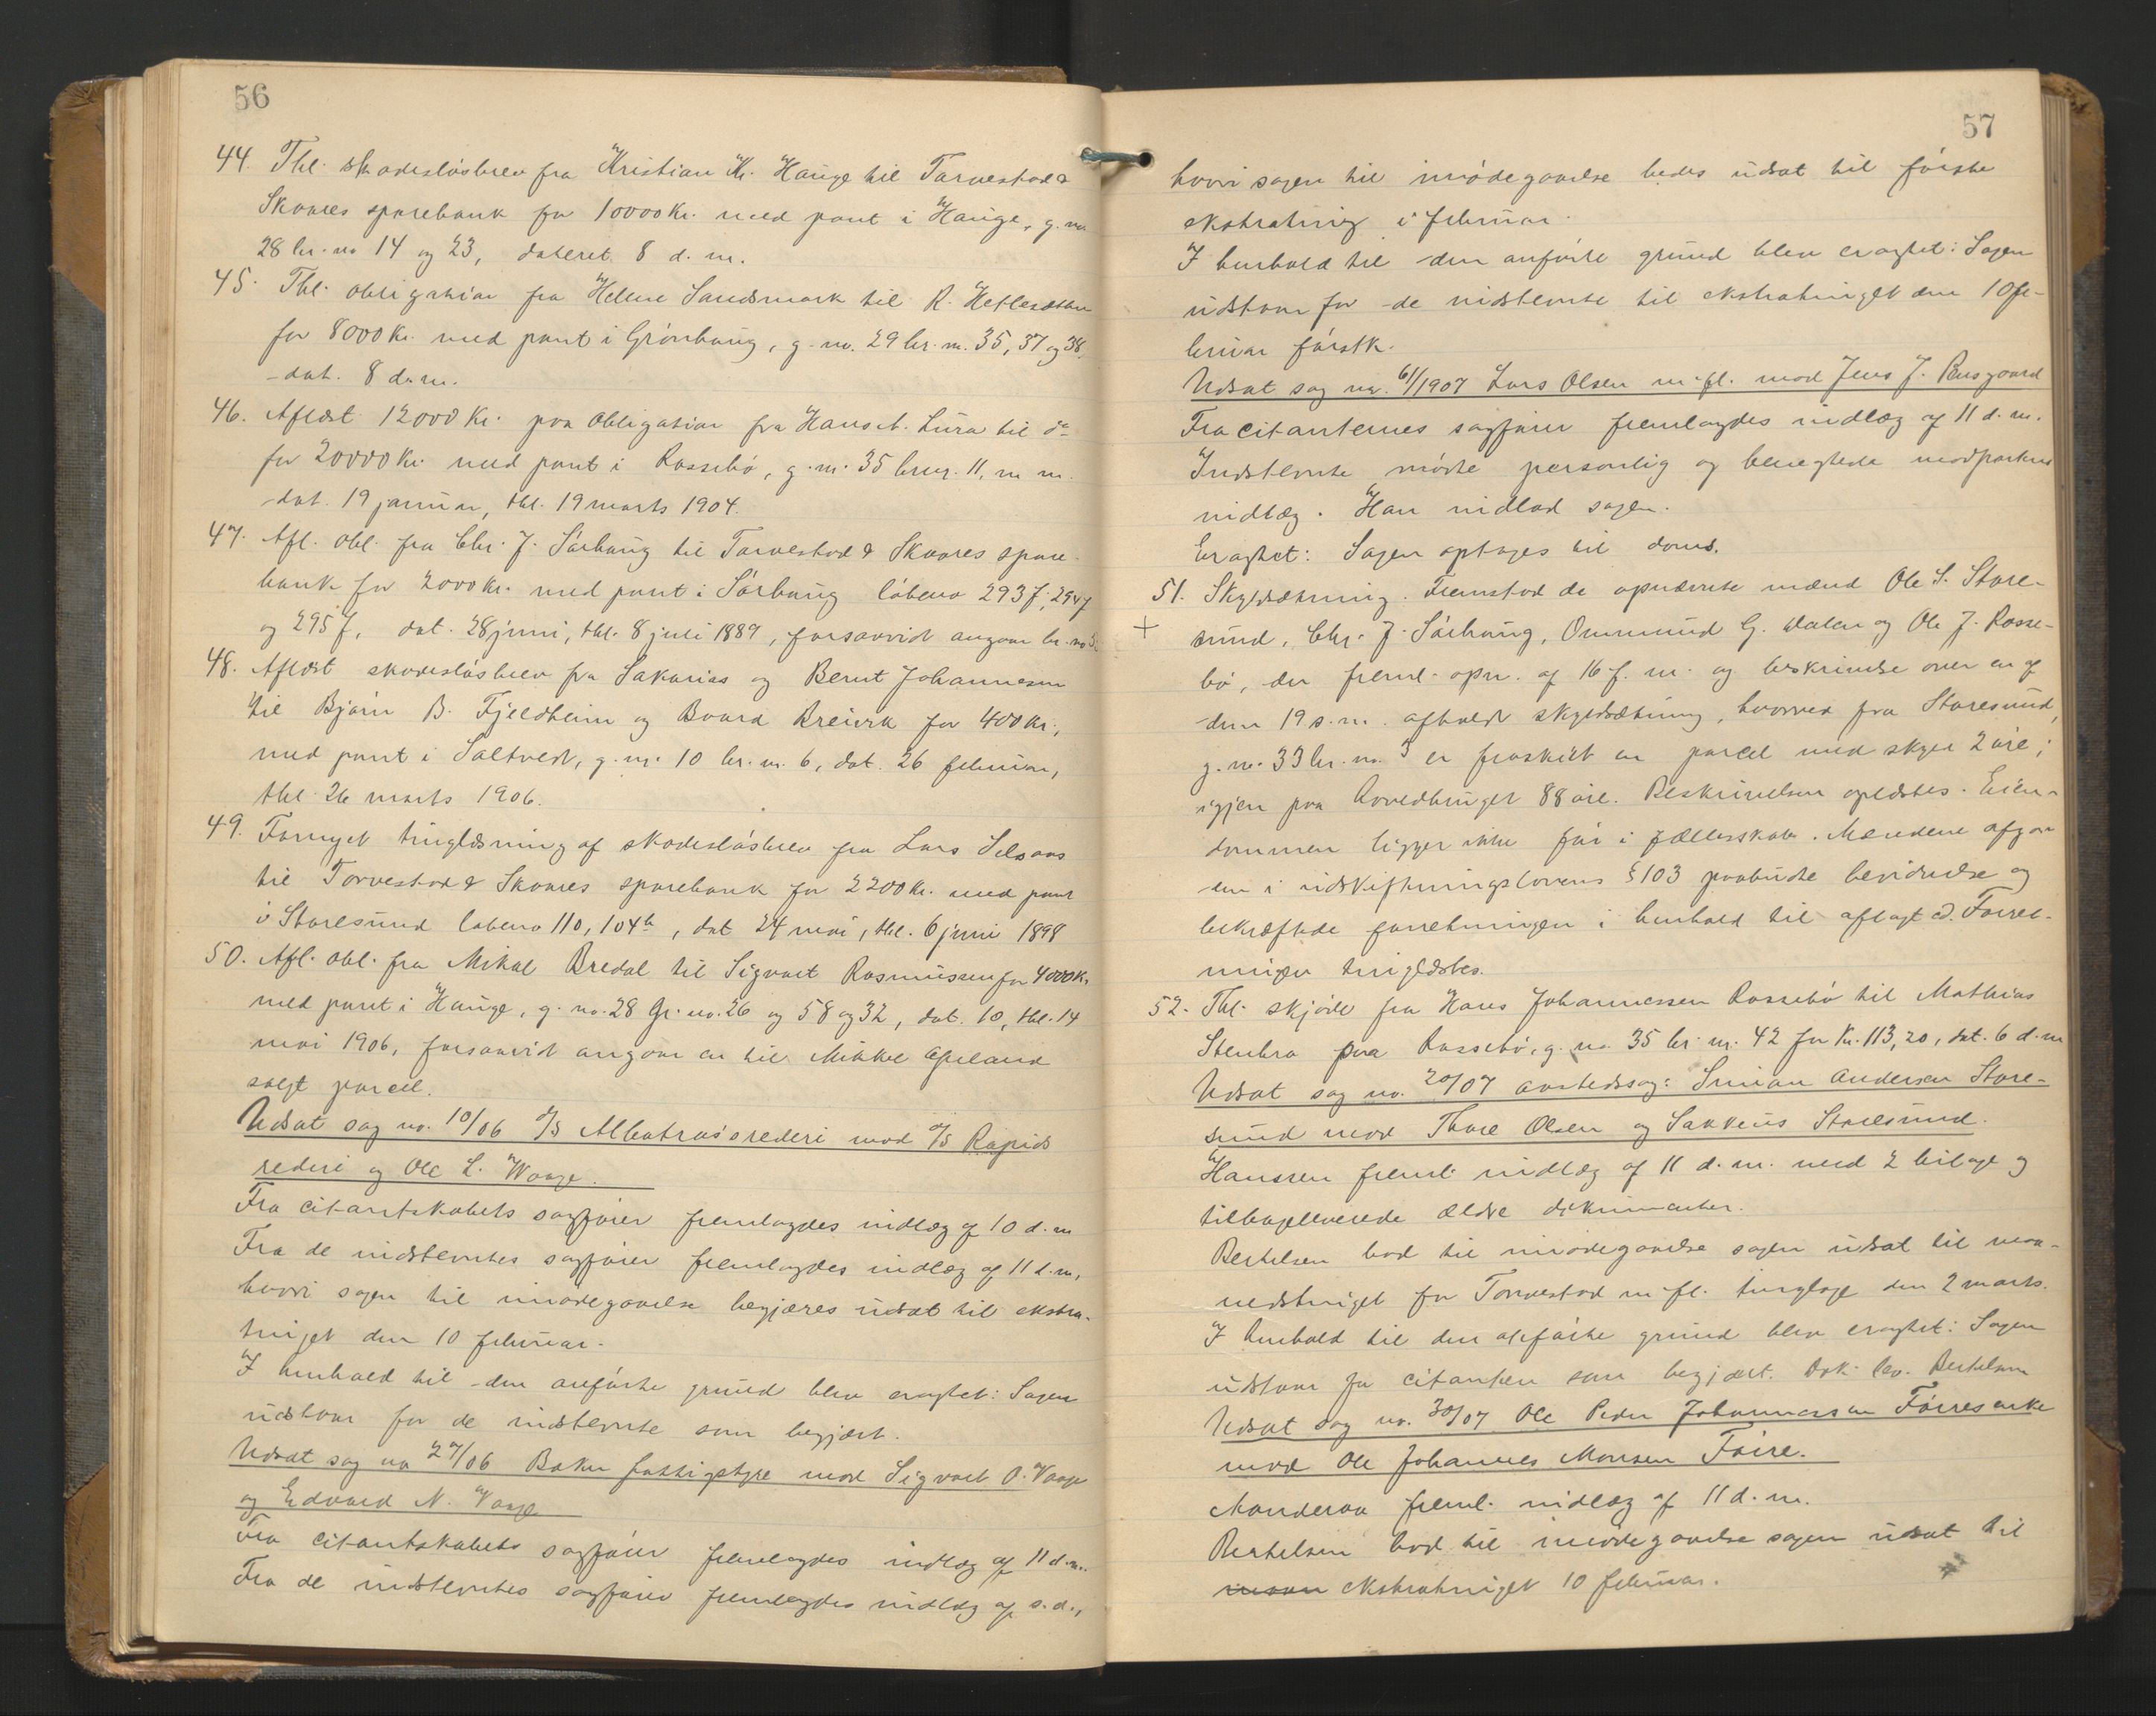 56
44. Thl. skadesløsbrev fra Kristian K. Hauge til Torvestad &
Skaares sparebank for 10000 Kr. med pant i Hauge, g. no.
28 br. no 14 og 23, dateret 8 d. m.
45. Thl. obligation fra Helene Sandsmark til R.
for 8000 Kr. med pant i Grønhaug, g. no. 29 br. n. 35, 37 og 38,
dat. 8 d. m.
46. Aflæst 12000 Kr. paa obligation fra Hans A. Lura til do
for 20000 Kr. med pant i Rossebø, g. n. 35 brnr. 11, m m.
dat. 19 januar, thl. 19 marts 1904.
47. Afl. obl. fra Chr. J. Sørhaug til Torvestad & Skaares spare-
bank for 2000 Kr. med pant i Sørhaug løbeno 293 f, 294 f
og 295 f, dat. 28 juni, thl. 8 juli 1889, forsaavidt angaar br. no
48. Aflæst skadesløsbrev fra Sakarias og Bernt Johannesen
til Bjørn B. Fjeldheim og Baard Breivik for 400 Kr.,
med pant i Saltvedt, g. n. 10 br. n. 6, dat. 26 februar,
thl. 26 marts 1906.
49. Fornyet tinglæsning af skadesløsbrev fra Lars
til Torvestad & Skaares sparebank for 2200 Kr. med pant
i Storesund løbeno 110, 104 b, dat 24 mai, thl. 6 juni 1898
50. Afl. obl. fra Mikal Bredal til Sigvart Rasmussen for 4000 K.
med pant i Hauge, g. no. 28 br. no. 26 og 58 og 32, dat. 10, thl. 14
mai 1906, forsaavidt angaar en til Mikkel Apeland
solgt parcel.
Udsat sag no. 10/06 A/S Albatros's rederi mod A/S Rapids
rederi og Ole L. Waage.
Fra citantskabets sagfører fremlagdes indlæg af 10 d. m
Fra de indstevntes sagfører fremlagdes indlæg af 11 d. m.
hvori sagen til imødegaaelse begjæres udsat til ekstra-
tinget den 10 februar.
I henhold til den anførte grund blev eragtet: Sagen
udstaar for de indstevnte som begjært.
Udsat sag no 27/06 Bokn fattigstyre mod Sigvart O. Vaage
og Edvard N. Vaage
Fra citantskabets sagfører fremlagdes indlæg af 11 d. m.
Fra de indstevntes sagfører fremlagdes indlæg af s. d.,
57
hvori sagen til imødegaaelse bedes udsat til første
ekstrating i februar.
I henhold til den anførte grund blev eragtet: Sagen
udstaar for de indstevnte til ekstratinget den 10 fe-
bruar førstk.
Udsat sag no. 61/1907 Lars Olsen m. fl. mod Jens J. Risgaard
Fra citanternes sagfører fremlagdes indlæg af 11 d. m.
Indstevnte mødte personlig og benegtede modpartens
indlæg. Han indlod sagen.
Eragtet: Sagen optages til doms.
51. Skyldsætning. Fremstod de opnævnte mænd Ole S. Store-
+ sund, Chr. J. Sørhaug, Ommund G. Dalen og Ole J. Rosse-
bø, der freml. opn. af 16 f. m. og beskrivelse over en af
dem 19 s. m. afholdt skyldsætning, hvorved fra Storesund,
g. no. 33 br. no. 5 er fraskilt en parcel med skyld 2 øre;
igjen paa hovedbruget 88 øre. Beskrivelsen oplæstes. Eien-
dommen ligger ikke før i fællesskab. Mændene afgav
den i udskiftningslovens § 103 paabudte bevidnelse og
bekræftede forretningen i henhold til aflagt ed. Forret-
ningen tinglæstes.
52. Thl. skjøde fra Hans Johannessen Rossebø til Mathias
Stenbro paa Rossebø, g. no. 35 br. n. 42 for Kr. 113,20, dat. 6 d. m
Udsat sag no. 20/07 aastedssag: Simon Andersen Store-
sund mod Thore Olsen og Sakkeus Storesund.
Hanssen freml. indlæg af 11 d. m. med 2 bilage og
tilbageleverede ældre dokumenter.
Bertelsen bad til imødegaaelse sagen udsat til maa-
nedstinget for Torvestad m. fl. tinglage den 2 marts.
I henhold til den anførte grund blev eragtet: Sagen
udstaar for citanten som begjært. Dok. lev. Bertelsen
Udsat sag no. 30/07 Ole Peder Johannessen Førres enke
mod Ole Johannes Monsen Førre.
Aanderaa freml. indlæg af 11 d. m.
Bertelsen bad til imødegaaelse sagen udsat til
ekstratinget 10 februar.